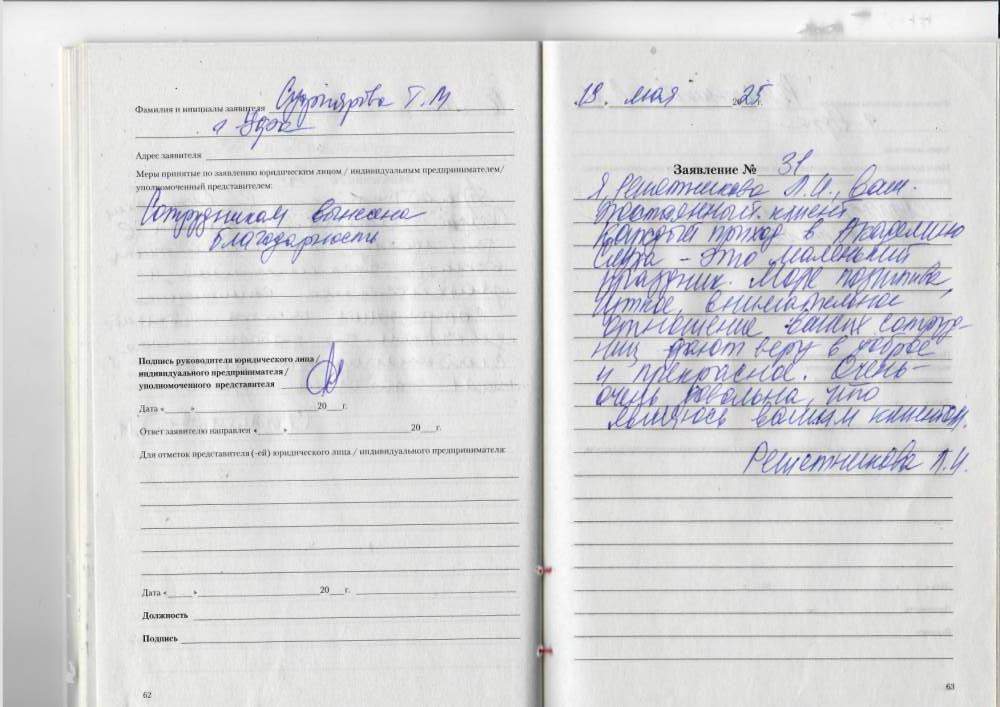 Фамилия и инициалы заявителя Т. М
Адрес заявителя
Меры принятые по заявлению юридическим лицом / индивидуальным предпринимателем/
уполномоченный представителем:
Сотрудникам вынесена
благодарности
Подпись руководителя юридического лица /
индивидуального предпринимателя /
уполномоченного представителя
Дата «_____»__________20___г.
Ответ заявителю направлен «_____»__________20___г.
Для отметок представителя (-ей) юридического лица / индивидуального предпринимателя:
Дата «_____»__________20___г.
Должность
Подпись
62
19. мая 2025г.
Заявление № 31
Я, Решетникова Л.И., ваш
постоянный клиент
Каждый приход в Академию
Слуха - это маленький
праздник. Море позитива,
чуткое, внимательное
отношение ваших сотруд-
ниц дают веру в доброе
и прекрасное. Очень-
очень довольна, что
являюсь вашим клиентом.
Решетникова Л.И.
63